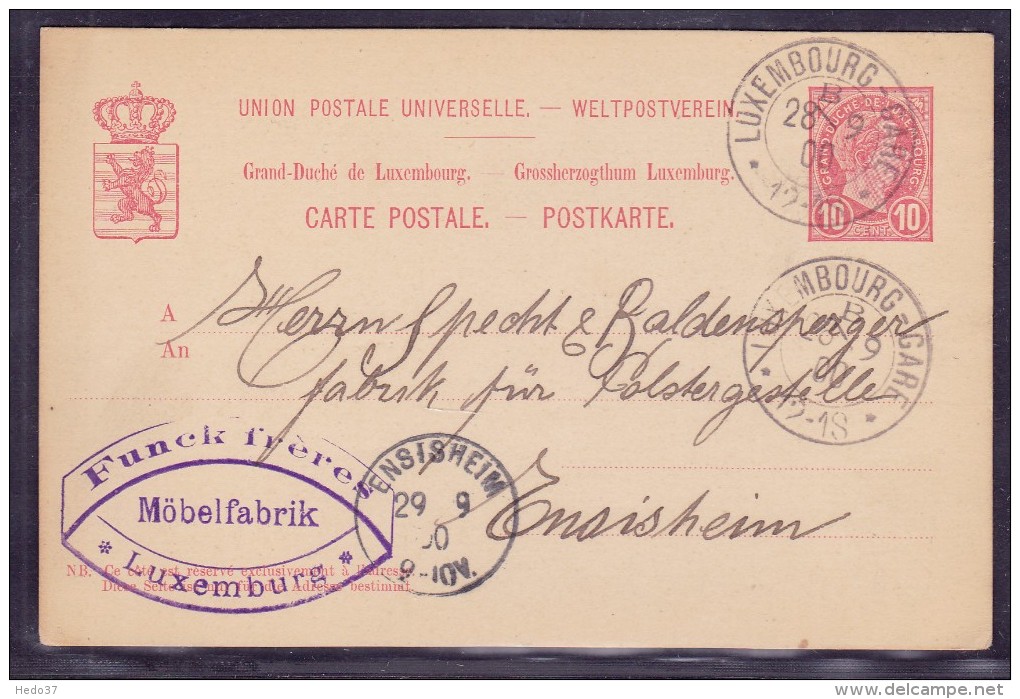 UNION POSTALE UNIVERSELLE. — WELTPOSTVEREIN
Grand-Duché de Luxembourg. — Grossherzogthum Luxemburg.
CARTE POSTALE. — POSTKARTE.
GRAND-DUCHÉ-DE-LUXEMBOURG
10 CENT. 10
LUXEMBOURG-GARE
B
28 9
00
12-1S
A Herrn Specht & Baldensperger
An Fabrik für Polstergestelle
Ensisheim
LUXEMBOURG-GARE
B
28 9
00
12-1S
Funck frères
Möbelfabrik
* Luxemburg *
ENSISHEIM
29 9
00
9-10V.
NB. Ce côté est réservé exclusivement à l'adresse.
Diese Seite ist nur für die Adresse bestimmt.
Hedo37
www.delcampe.net